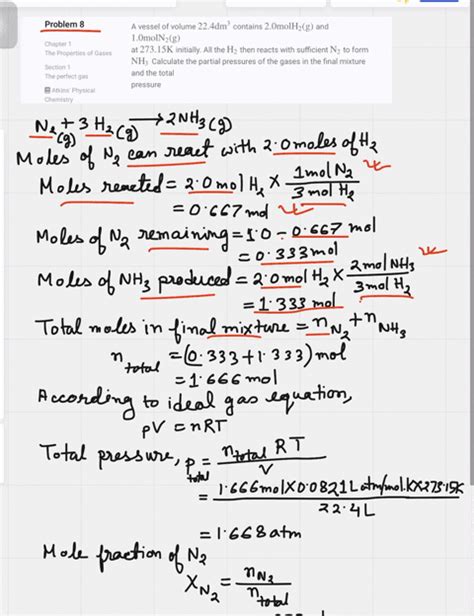 Problem 8
Chapter 1
The Properties of Gases
Section 1
The perfect gas
Atkins' Physical
Chemistry
A vessel of volume 22.4dm³ contains 2.0molH₂(g) and
1.0molN₂(g)
at 273.15K initially. All the H₂ then reacts with sufficient N₂ to form
NH₃ Calculate the partial pressures of the gases in the final mixture
and the total
pressure
N₂(g) + 3H₂(g) → 2NH₃(g)
Moles of N₂ can react with 2.0moles of H₂
Moles reacted = 2.0mol H₂ × 1mol N₂ / 3mol H₂
= 0.667mol
Moles of N₂ remaining = 1.0 - 0.667 mol
= 0.333mol
Moles of NH₃ produced = 2.0mol H₂ × 2mol NH₃ / 3mol H₂
= 1.333 mol
Total moles in final mixture = n N₂ + n NH₃
n total = (0.333+1.333) mol
= 1.666 mol
According to ideal gas equation,
pV = nRT
Total pressure, p total = n total RT / V
= 1.666mol×0.0821Latm/mol.K×273.15K / 22.4L
= 1.668 atm
Mole fraction of N₂
X N₂ = n N₂ / n total